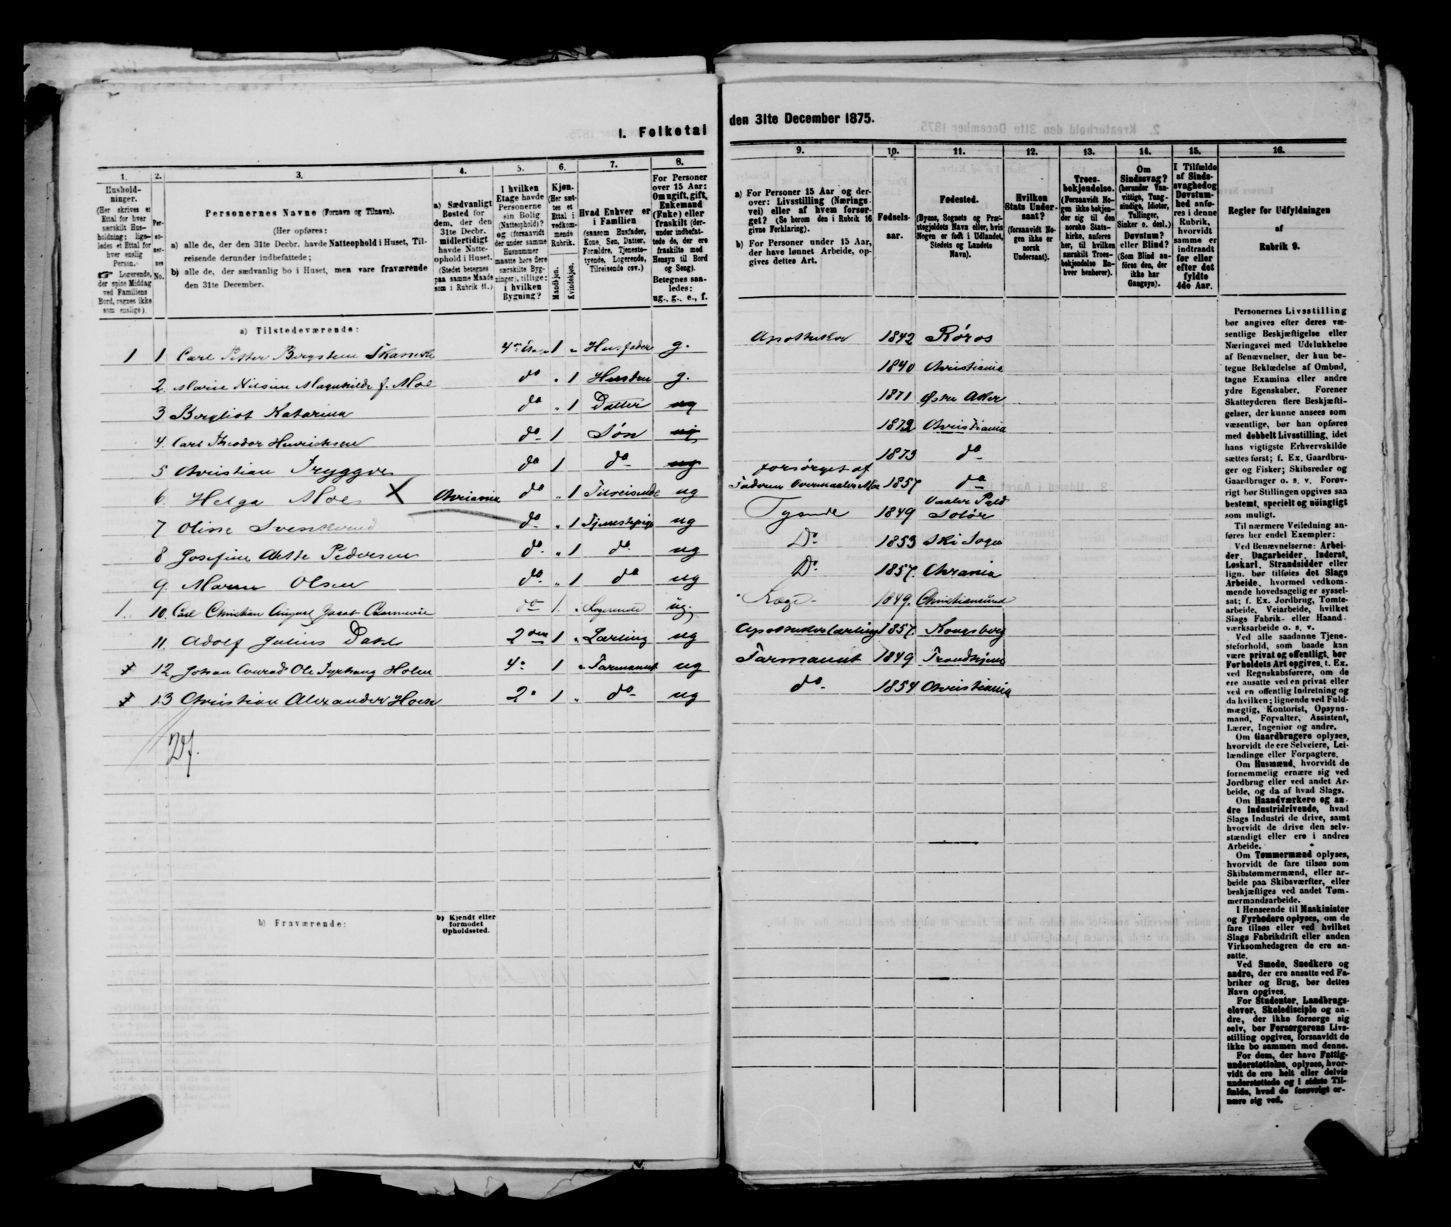 I. Folketal
den 31te December 1875.
1. 2. 3. 4. 5. 6. 7. 8.
Hushold-
ninger.
(Her skrives et
Ettal for hver
særskilt Hus-
holdning; lige-
ledes et Ettal for
hver enslig
Person.
☛ Logerende,
der spise Middag
ved Familiens
Bord, regnes ikke
som enslige).
Per-
soner-
nes
No.
Personernes Navne (Fornavn og Tilnavn).
(Her opføres:
a) alle de, der den 31te Decbr. havde Natteophold i Huset, Til-
reisende derunder indbefattede;
b) alle de, der sædvanlig bo i Huset, men vare fraværende
den 31te December.
a) Sædvanligt
Bosted for
dem, der den
31te Decbr.
midlertidigt
havde Natte-
ophold i Huset.
(Stedet betegnes
paa samme Maade
som i Rubrik 11.)
I hvilken
Etage havde
Personerne
sin Bolig
(Natteophold)?
og (forsaavidt
der under samme
Husnummer
maatte høre flere
særskilte Byg-
ninger), tillige:
i hvilken
Bygning?
Kjøn.
(Her sæt-
tes et
Ettal i
vedkom-
mende
Rubrik.
Mandkjøn.
Kvindekjøn.
Hvad Enhver er
i Familien
(saasom Husfader,
Kone, Søn, Datter,
Forældre, Tjeneste-
tyende, Logerende,
Tilreisende osv.).
For Personer
over 15 Aar:
Om ugift, gift,
Enkemand
(Enke) eller
fraskilt (der-
under indbefat-
tede de, der ere
fraskilte med
Hensyn til Bord
og Seng).
Betegnes saa-
ledes:
ug., g., e., f.
9. 10. 11. 12. 13. 14. 15. 16.
a) For Personer 15 Aar og der-
over: Livsstilling (Nærings-
vei) eller af hvem forsør-
get? (Se herom den i Rubrik 16
givne Forklaring).
b) For Personer under 15 Aar,
der have lønnet Arbeide, op-
gives dettes Art.
Fødsels-
aar.
Fødested.
(Byens, Sognets og Præ-
stegjeldets Navn eller, hvis
Nogen er født i Udlandet,
Stedets og Landets
Navn).
Hvilken
Stats Under-
saat?
(forsaavidt No-
gen ikke er
norsk
Undersaat).
Troes-
bekjendelse.
(Forsaavidt No-
gen ikke bekjen-
der sig til den
norske Stats-
kirke, anføres
her, til hvilken
særskilt Troes-
bekjendelse En-
hver henhører).
Om
Sindssvag?
(herunder Van-
vittige, Tung-
sindige, Idioter,
Tullinger,
Sinker o. desl.)
Døvstum?
eller Blind?
(Som Blind an-
føres den, der
ikke har
Gangsyn).
I Tilfælde
af Sinds-
svaghed og
Døvstum-
hed anfø-
res i denne
Rubrik,
hvorvidt
samme er
indtraadt
før eller
efter det
fyldte
4de Aar.
Regler for Udfyldningen
af
Rubrik 9.
a) Tilstedeværende:
1 1 Carl Petter Bergsteen 4de 1 " Husfader g. Apotheker 1842 Røros
2 Marie Nilsine Magnhilde f. Moe do " 1 g. 1840 Christiania
3 Bergliot Katarina do " 1 Datter ug 1871 Østre Aker
4. Carl Theodor Henrichsen do 1 Søn ug 1872 Christiania
5 Christian Tryggve do 1 do ug 1873 do
6. Helga Moe X Chriania do " 1 Tilreisende ug forsørget af
Faderen 1857 do
7 Oline do " 1 Tjenestepige ug Tyende 1849 Vaaler Pgld Solør
8 Josefine Pedersen do. " 1 do. ug Do 1853 Ski Sogn
9. Maren Olsen do " 1 do ug Do 1857. Chrania
1. 10. Carl Christian August do 1. " Logerende ug. 1849. Christiansund
11. Adolf Julius Dahl 2den 1 " Lærling ug Apothekerlærling 1857. Kongsberg
12 Johan Conrad Ole Holm 4. 1 " Farmaceut ug Farmaceut 1849 Trondhjem
13 Christian Alexander 2. 1 " do ug do. 1854 Christiania
b) Fraværende:
b) Kjendt eller
formodet
Opholdssted.
Personernes Livsstilling
bør angives efter deres væ-
sentlige Beskjæftigelse eller
Næringsvei med Udelukkelse
af Benævnelser, der kun be-
tegne Beklædelse af Ombud,
tagne Examina eller andre
ydre Egenskaber. Forener
Skatteyderen flere Beskjæfti-
gelser, der kunne ansees som
væsentlige, bør han opføres
med dobbelt Livsstilling, idet
hans vigtigste Erhvervskilde
sættes først; f. Ex. Gaardbru-
ger og Fisker; Skibsreder og
Gaardbruger o. s. v. Forøv-
rigt bør Stillingen opgives saa
bestemt, specielt og nøiagtigt
som muligt.
Til nærmere Veiledning an-
føres her endel Exempler:
Ved Benævnelserne: Arbei-
der, Dagarbeider, Inderst,
Løskarl, Strandsidder eller
lign. bør tilføies det Slags
Arbeide, hvormed vedkom-
mende hovedsagelig er syssel-
sat; f. Ex. Jordbrug, Tomte-
arbeide, Veiarbeide, hvilket
Slags Fabrik- eller Haand-
værksarbeide o. s. v.
Ved alle saadanne Tjene-
steforhold, som baade kan
være privat og offentligt, bør
Forholdets Art opgives, t. Ex.
ved Regnskabsførere, om de
ere ansatte ved en privat eller
ved en offentlig Indretning og
da hvilken; lignende ved Fuld-
mægtig, Kontorist, Opsyns-
mand, Forvalter, Assistent,
Lærer, Ingeniør og andre.
Om Gaardbrugere oplyses,
hvorvidt de ere Selveiere, Lei-
lændinge eller Forpagtere.
Om Husmænd, hvorvidt de
fornemmelig ernære sig ved
Jordbrug eller ved andet Ar-
beide, og da af hvad Slags.
Om Haandværkere og an-
dre Industridrivende, hvad
Slags Industri de drive, samt
hvorvidt de drive den selv-
stændigt eller ere i andres
Arbeide.
Om Tømmermænd oplyses,
hvorvidt de fare tilsøs som
Skibstømmermænd, eller ar-
beide paa Skibsværfter, eller
beskjæftiges ved andet Tøm-
mermandsarbeide.
I Henseende til Maskinister
og Fyrbødere oplyses, om de
fare tilsøs eller ved hvilket
Slags Fabrikdrift eller anden
Virksomhedsgren de ere an-
satte.
Ved Smede, Snedkere og
andre, der ere ansatte ved Fa-
briker og Brug, bør dettes
Navn opgives.
For Studenter, Landbrugs-
elever, Skoledisciple og an-
dre, der ikke forsørge sig
selv, bør Forsørgerens Livs-
stilling opgives, forsaavidt de
ikke bo sammen med denne.
For dem, der have Fattig-
understøttelse, oplyses, hvor-
vidt de ere helt eller delvis
understøttede og i sidste Til-
fælde, hvad de forøvrigt er-
nære sig ved.